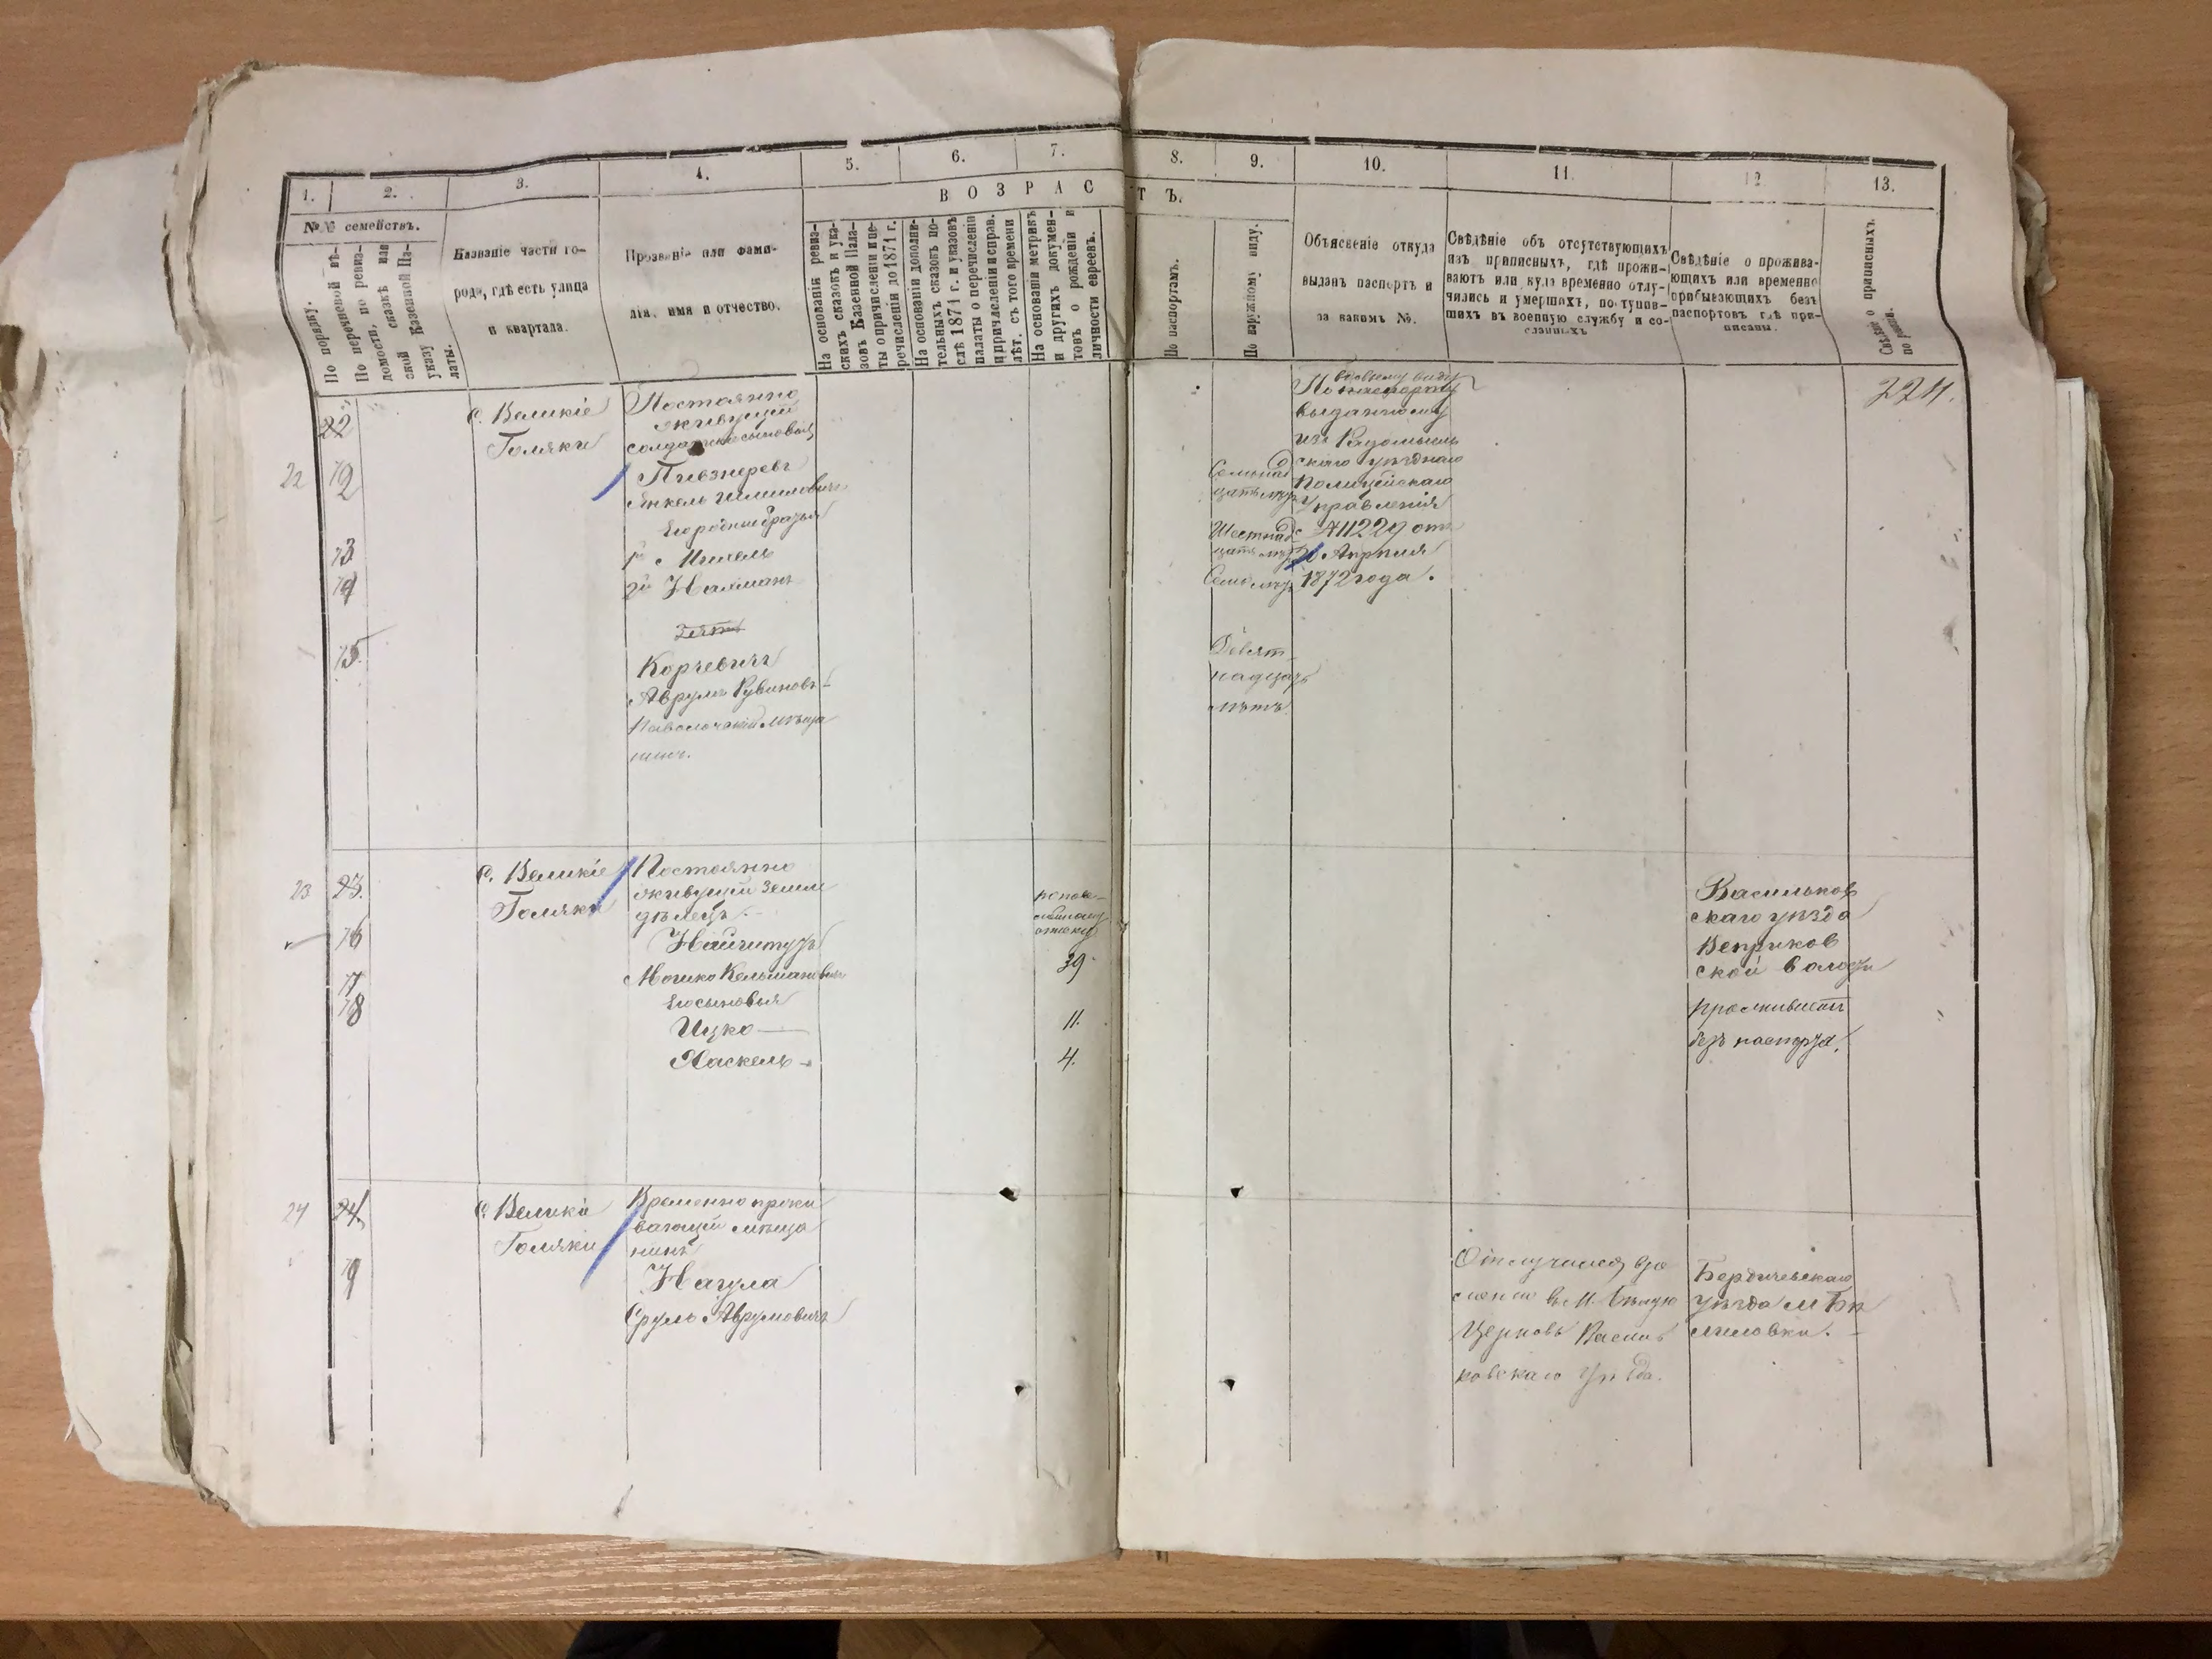 1.
2.
3.
4.
5.
6.
7.
8.
9.
10.
11.
12
13.
В О З Р А С Т Ъ.
№№ семействъ.
По порядку.
По перечневой вѣ-
домости, по ревиз-
ской сказкѣ или
указу Казенной Па-
латы.
Названіе части го-
рода, гдѣ есть улица
и квартала.
Прозваніе или фами-
лія, имя и отчество.
На основаніи ревиз-
скихъ сказокъ и ука-
зовъ Казенной Пала-
ты о причисленіи и пе-
речисленіи до 1871 г.
На основаніи дополни-
тельныхъ сказокъ по-
слѣ 1871 г. и указовъ
палаты о перечисленіи
и причисленіи и справ.
лѣт. съ того времени
На основаніи метрикъ
и другихъ докумен-
товъ о рожденіи и
личности евреевъ.
По паспортамъ.
По наружному виду.
Объясненіе откуда
выданъ паспортъ и
за какимъ №.
Свѣдѣніе объ отсутствующихъ
изъ приписныхъ, гдѣ прожи-
ваютъ или куда временно отлу-
чились и умершихъ, поступив-
шихъ въ военную службу и со-
сланныхъ
Свѣдѣніе о прожива-
ющихъ или временно
прибывающихъ безъ
паспортовъ гдѣ при-
писаны.
Свѣдѣніе о приписныхъ
по ревизіи.
22
22
72
73
74
75
с. Великіе
Голяки
Постоянно
живущій
Пивзнеревъ
Янкель Шлиомовичъ
Его родние братья
1й Михель
2й Нахманъ
зять
Корчевичъ
Аврумъ Рувиновъ
Паволочскій мѣща
нинъ.
Семнад
цать лѣтъ
Шестнад
цать лѣтъ
Семь лѣтъ
Девят-
надцать
лѣтъ
выданному
изъ Радомысль
скаго уѣзднаго
Полицейскаго
Управленія
№ 11229 отъ
Апрѣля
1872 года.
224.
23
23.
76
77
78
с. Великіе
Голяки
Постоянно
живущій земле
дѣлецъ.
Мошко Кельмановичъ
Его сыновья
Ицко
Хаскель
39
11.
4.
Васильков
скаго уѣзда
Веприков
ской волости
проживаетъ
безъ паспорта.
24
24.
79
с. Великіе
Голяки
Временно прожи
вающій мѣща
нинъ
Нагула
Сруль Аврумовичъ
Отлучился вре
менно въ М. Бѣлую
Церковь Василь
ковскаго уѣзда.
Бердичевскаго
уѣзда М. Бѣ
лиловки.